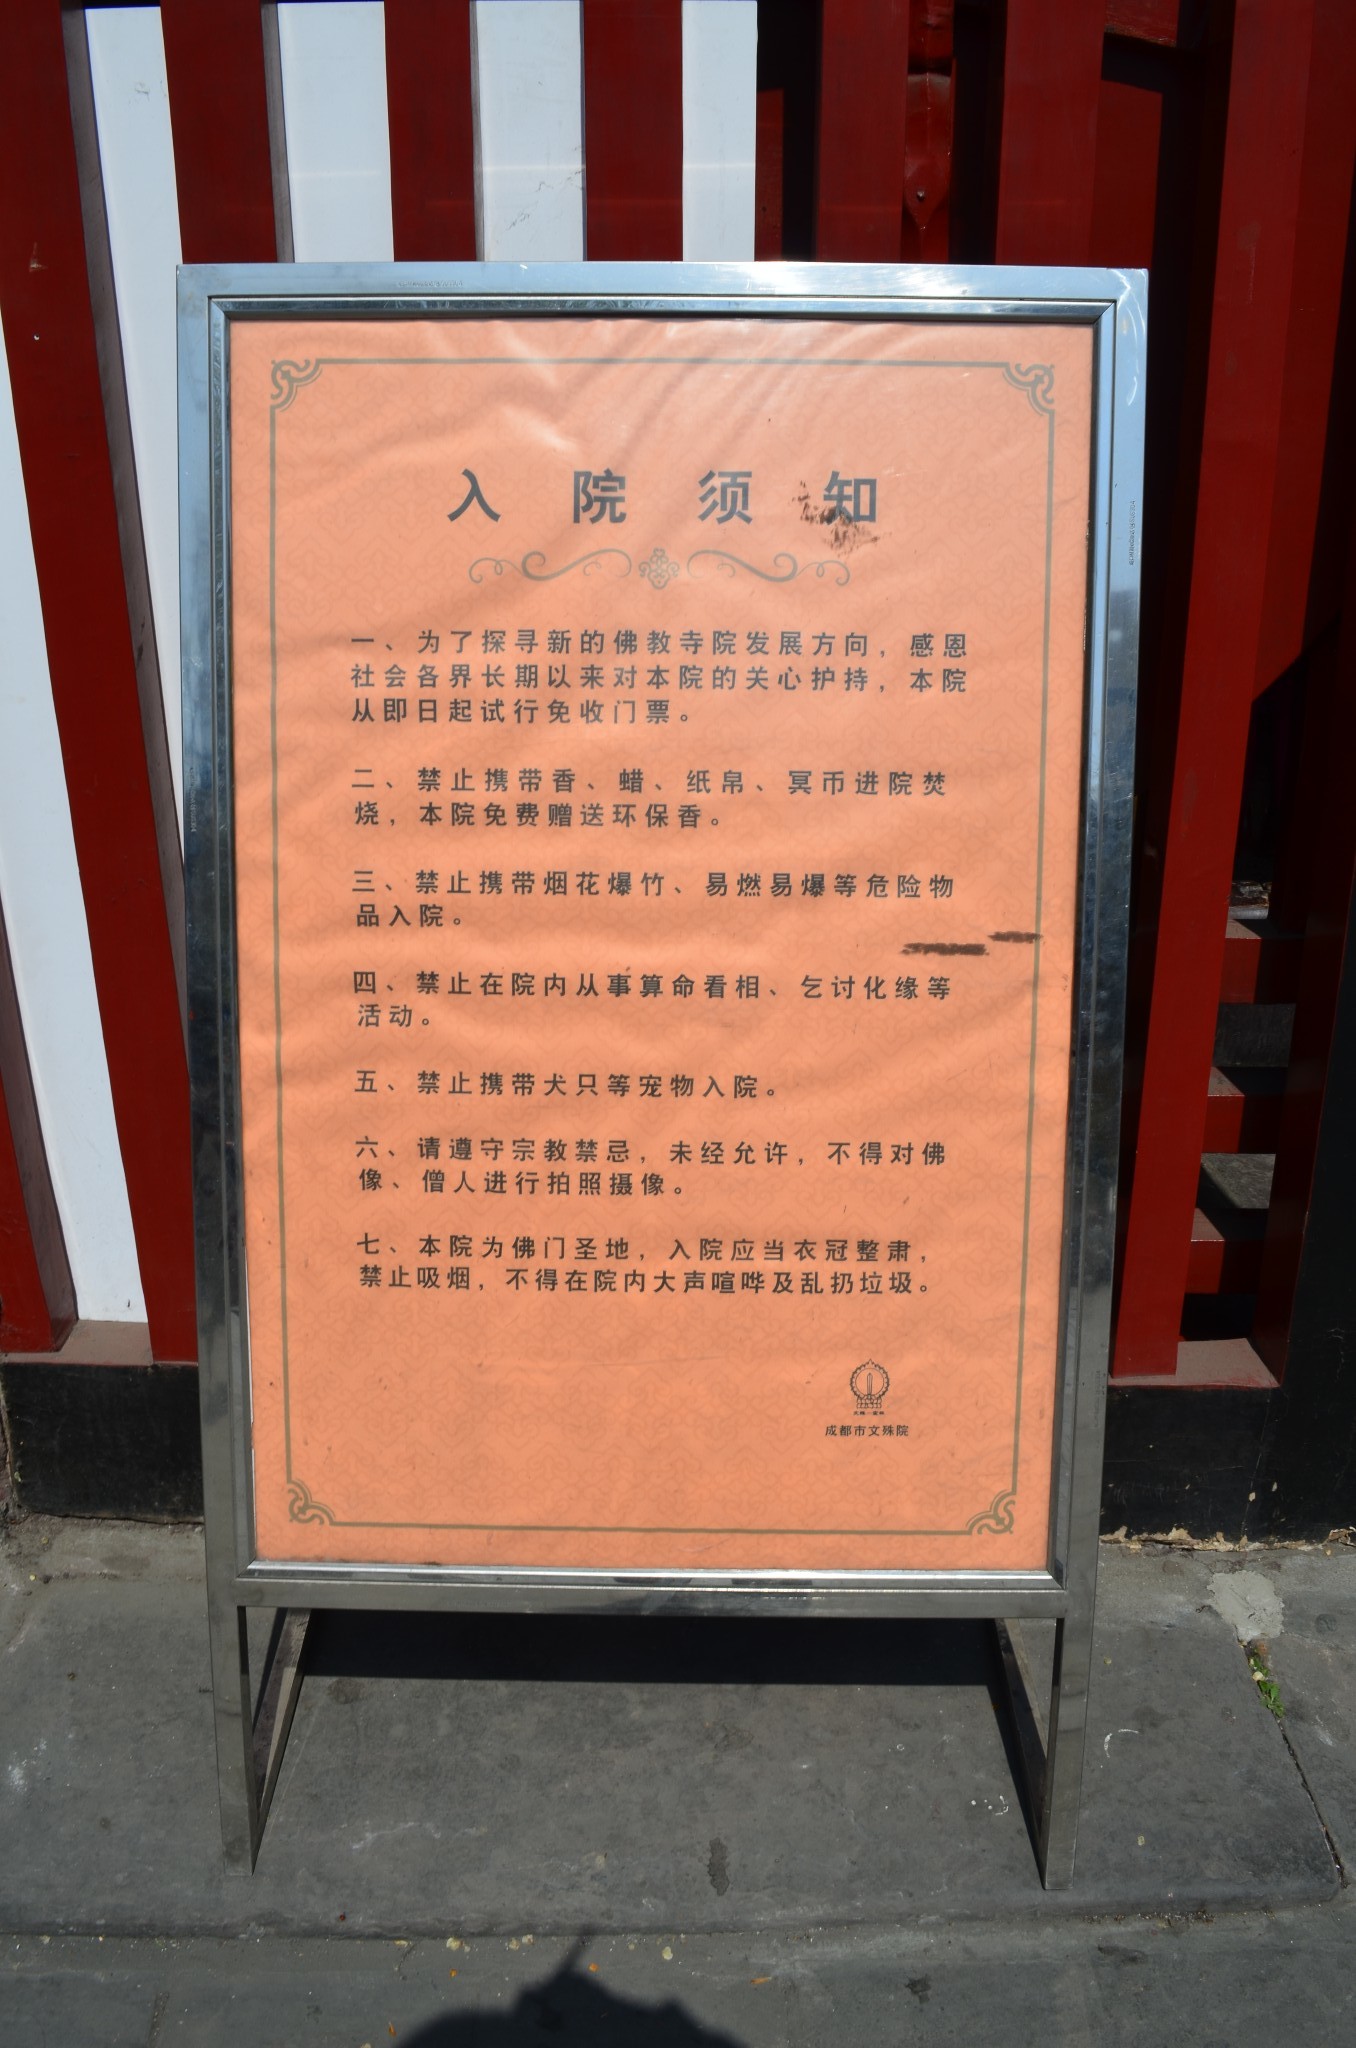 入院须知
一、为了探寻新的佛教寺院发展方向，感恩
社会各界长期以来对本院的关心护持，本院
从即日起试行免收门票。
二、禁止携带香、蜡、纸帛、冥币进院焚
烧，本院免费赠送环保香。
三、禁止携带烟花爆竹、易燃易爆等危险物
品入院。
四、禁止在院内从事算命看相、乞讨化缘等
活动。
五、禁止携带犬只等宠物入院。
六、请遵守宗教禁忌，未经允许，不得对佛
像、僧人进行拍照摄像。
七、本院为佛门圣地，入院应当衣冠整肃，
禁止吸烟，不得在院内大声喧哗及乱扔垃圾。
成都市文殊院